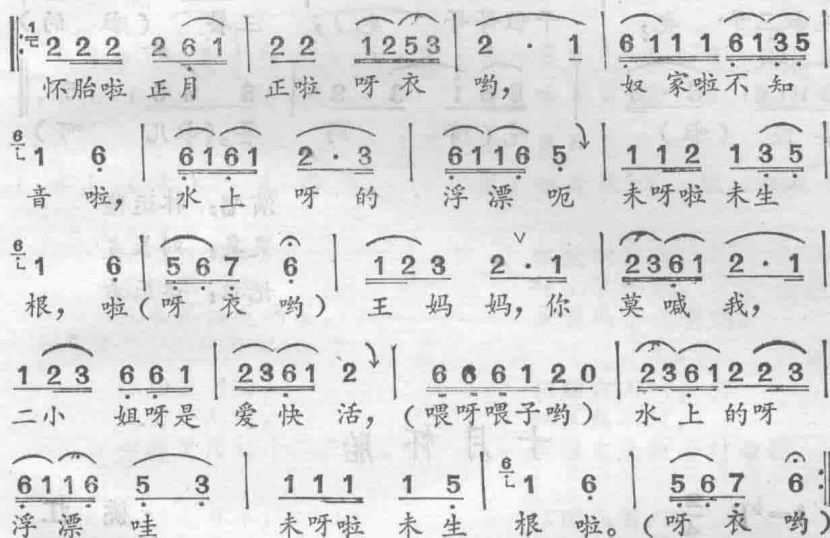 2 2 2 2 6 1 | 2 2 1 2 5 3 | 2 · 1 | 6 1 1 1 6 1 3 5 |
怀胎啦 正月 正啦 呀衣 哟, 奴 家啦不知
1 6 | 6 1 6 1 2 · 3 | 6 1 1 6 5 | 1 1 2 1 3 5 |
音 啦, 水上 呀的 浮漂 呃 未呀啦 未生
1 6 | 5 6 7 6 | 1 2 3 2 · 1 | 2 3 6 1 2 · 1 |
根, 啦(呀 衣 哟) 王 妈 妈, 你 莫喊 我,
1 2 3 6 6 1 | 2 3 6 1 2 | 6 6 6 1 2 0 | 2 3 6 1 2 2 3 |
二小 姐呀是 爱快 活, (喂呀喂子哟) 水上 的呀
6 1 1 6 5 3 | 1 1 1 1 5 | 1 6 | 5 6 7 6 :‖
浮漂 哇 未呀啦 未生 根 啦。(呀 衣 哟)